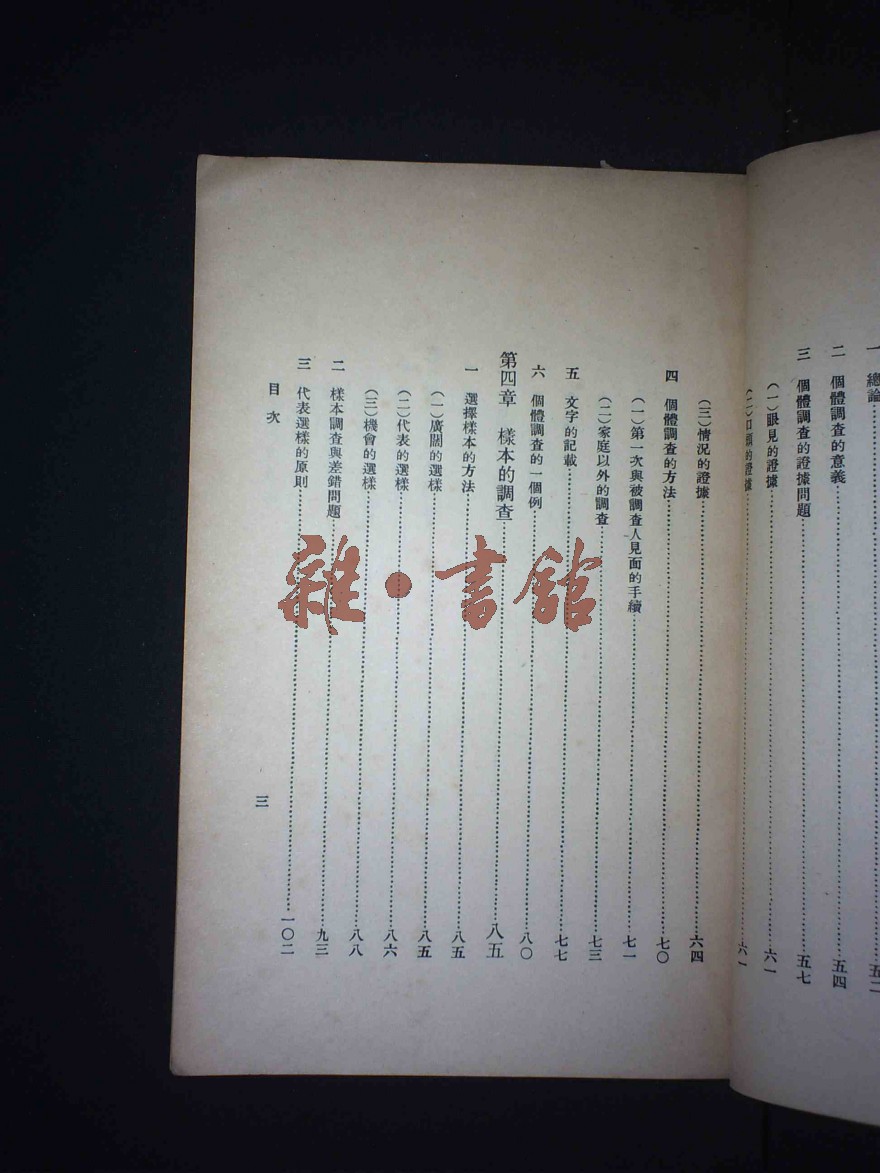 一　總論……五二
二　個體調查的意義……五四
三　個體調查的證據問題……五七
（一）眼見的證據……六一
（二）口頭的證據……六一
（三）情況的證據……六四
四　個體調查的方法……七〇
（一）第一次與被調查人見面的手續……七一
（二）家庭以外的調查……七三
五　文字的記載……七七
六　個體調查的一個例……八〇
第四章　樣本的調查……八五
一　選擇樣本的方法……八五
（一）廣闊的選樣……八五
（二）代表的選樣……八六
（三）機會的選樣……八八
二　樣本調查與差錯問題……九三
三　代表選樣的原則……一〇二
目次
三
雜·書館